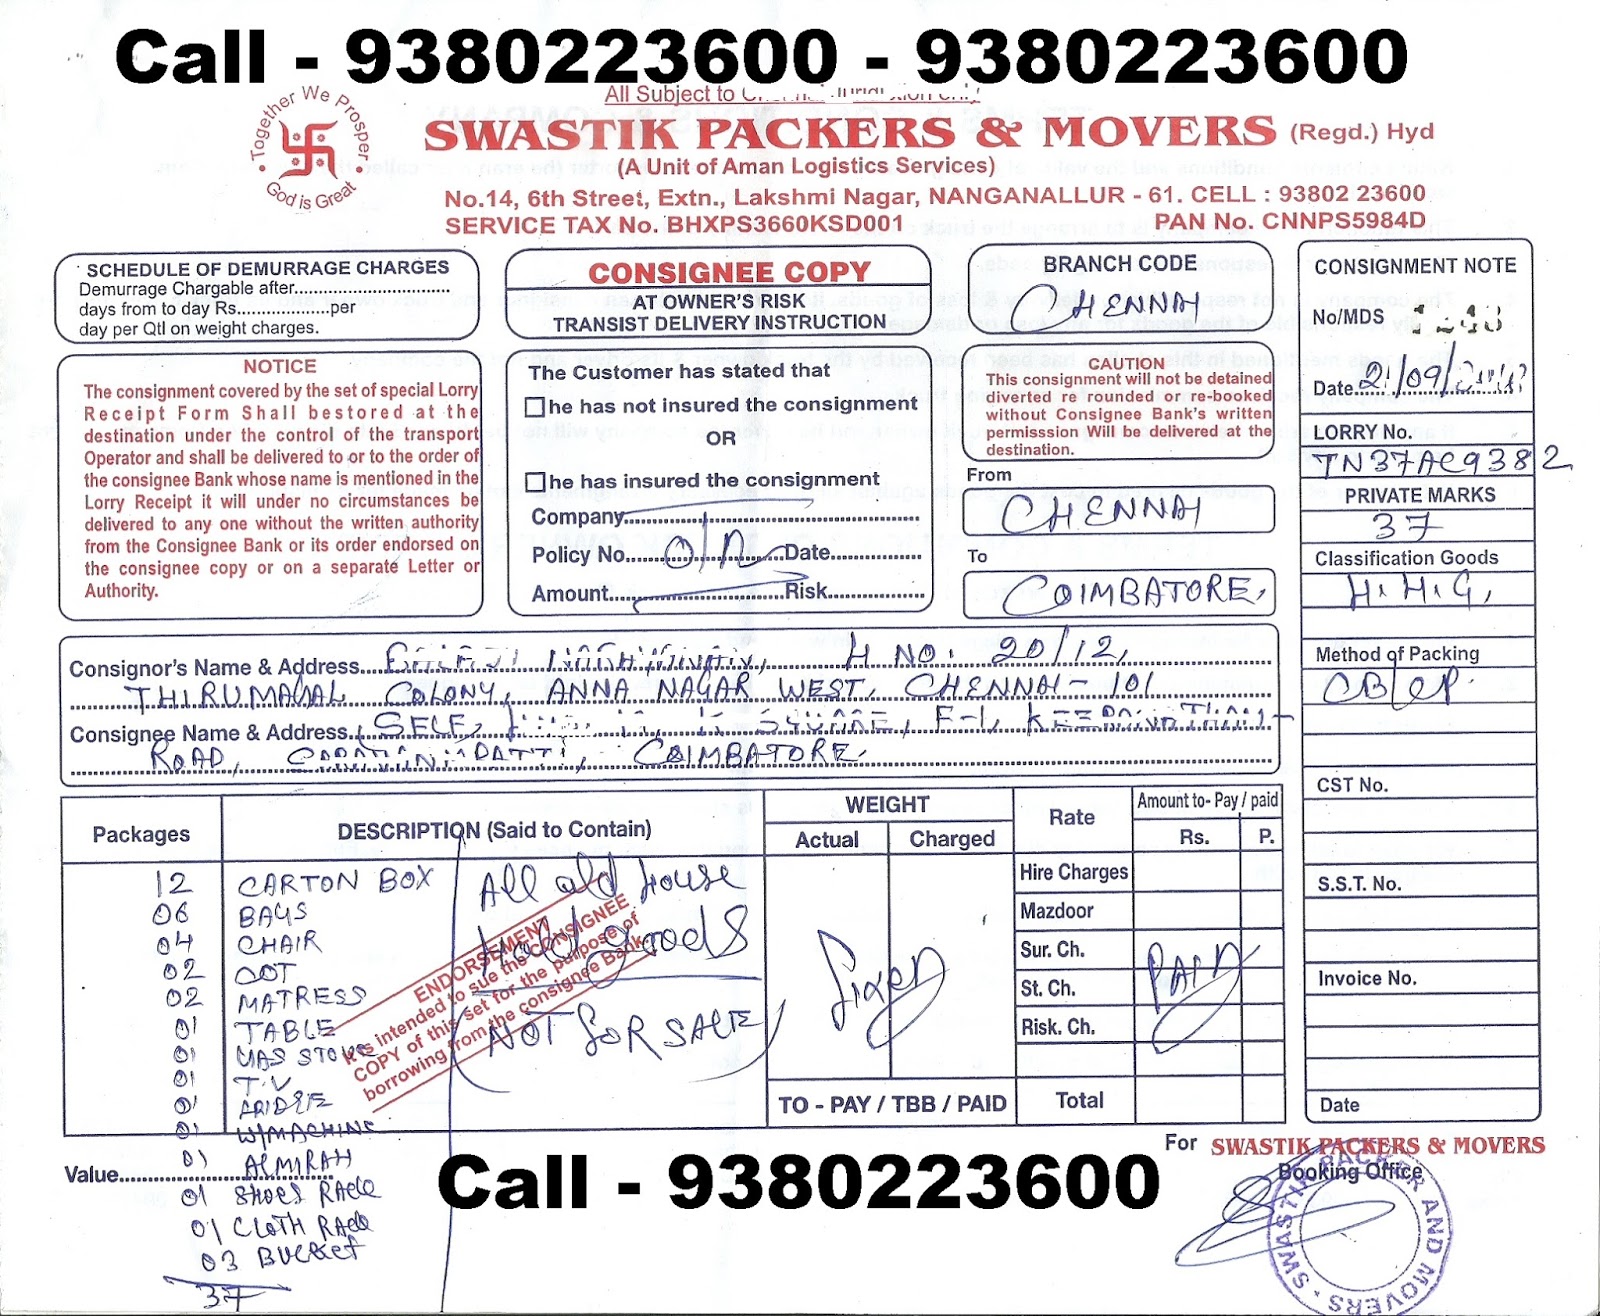 Call - 9380223600 - 9380223600
All Subject to
Together We Prosper
God is Great
SWASTIK PACKERS & MOVERS (Regd.) Hyd
(A Unit of Aman Logistics Services)
No.14, 6th Street, Extn., Lakshmi Nagar, NANGANALLUR - 61. CELL : 93802 23600
SERVICE TAX No. BHXPS3660KSD001 PAN No. CNNPS5984D
SCHEDULE OF DEMURRAGE CHARGES
Demurrage Chargable after
days from to day Rs. per
day per Qtl on weight charges.
NOTICE
The consignment covered by the set of special Lorry
Receipt Form Shall bestored at the
destination under the control of the transport
Operator and shall be delivered to or to the order of
the consignee Bank whose name is mentioned in the
Lorry Receipt it will under no circumstances be
delivered to any one without the written authority
from the Consignee Bank or its order endorsed on
the consignee copy or on a separate Letter or
Authority.
CONSIGNEE COPY
AT OWNER'S RISK
TRANSIST DELIVERY INSTRUCTION
The Customer has stated that
he has not insured the consignment
OR
he has insured the consignment
Company
Policy No. O/N Date
Amount Risk
BRANCH CODE
CHENNAI
CAUTION
This consignment will not be detained
diverted re rounded or re-booked
without Consignee Bank's written
permisssion Will be delivered at the
destination.
From
CHENNAI
To
COIMBATORE,
CONSIGNMENT NOTE
No/MDS
Date 21/09/
LORRY No.
TN37AC9382
PRIVATE MARKS
37
Classification Goods
H.H.G,
Method of Packing
CB/CP.
CST No.
S.S.T. No.
Invoice No.
Date
Consignor's Name & Address H NO. 20/12,
THIRUMAGAL COLONY, ANNA NAGAR WEST, CHENNAI - 101
Consignee Name & Address SELF, SQUARE, F-1,
ROAD, COIMBATORE
Packages DESCRIPTION (Said to Contain) WEIGHT Rate Amount to- Pay / paid
Actual Charged Rs. P.
12 CARTON BOX
06 BAGS
04 CHAIR
02 COT
02 MATRESS
01 TABLE
01 GAS STOVE
01 T.V
01 FRIDGE
01 W/MACHINE
01 ALMIRAH
01 SHOES RACK
01 CLOTH RACK
03 BUCKET
37
All old House
Hold goods
NOT FOR SALE
ENDORSEMENT
It is intended to sue the CONSIGNEE
COPY of this set for the purpose of
borrowing from the consignee Bank
Fixed
Hire Charges
Mazdoor
Sur. Ch.
St. Ch.
Risk. Ch.
PAID
TO - PAY / TBB / PAID Total
Value
Call - 9380223600
For SWASTIK PACKERS & MOVERS
Booking Office
SWASTIK PACKER AND MOVERS